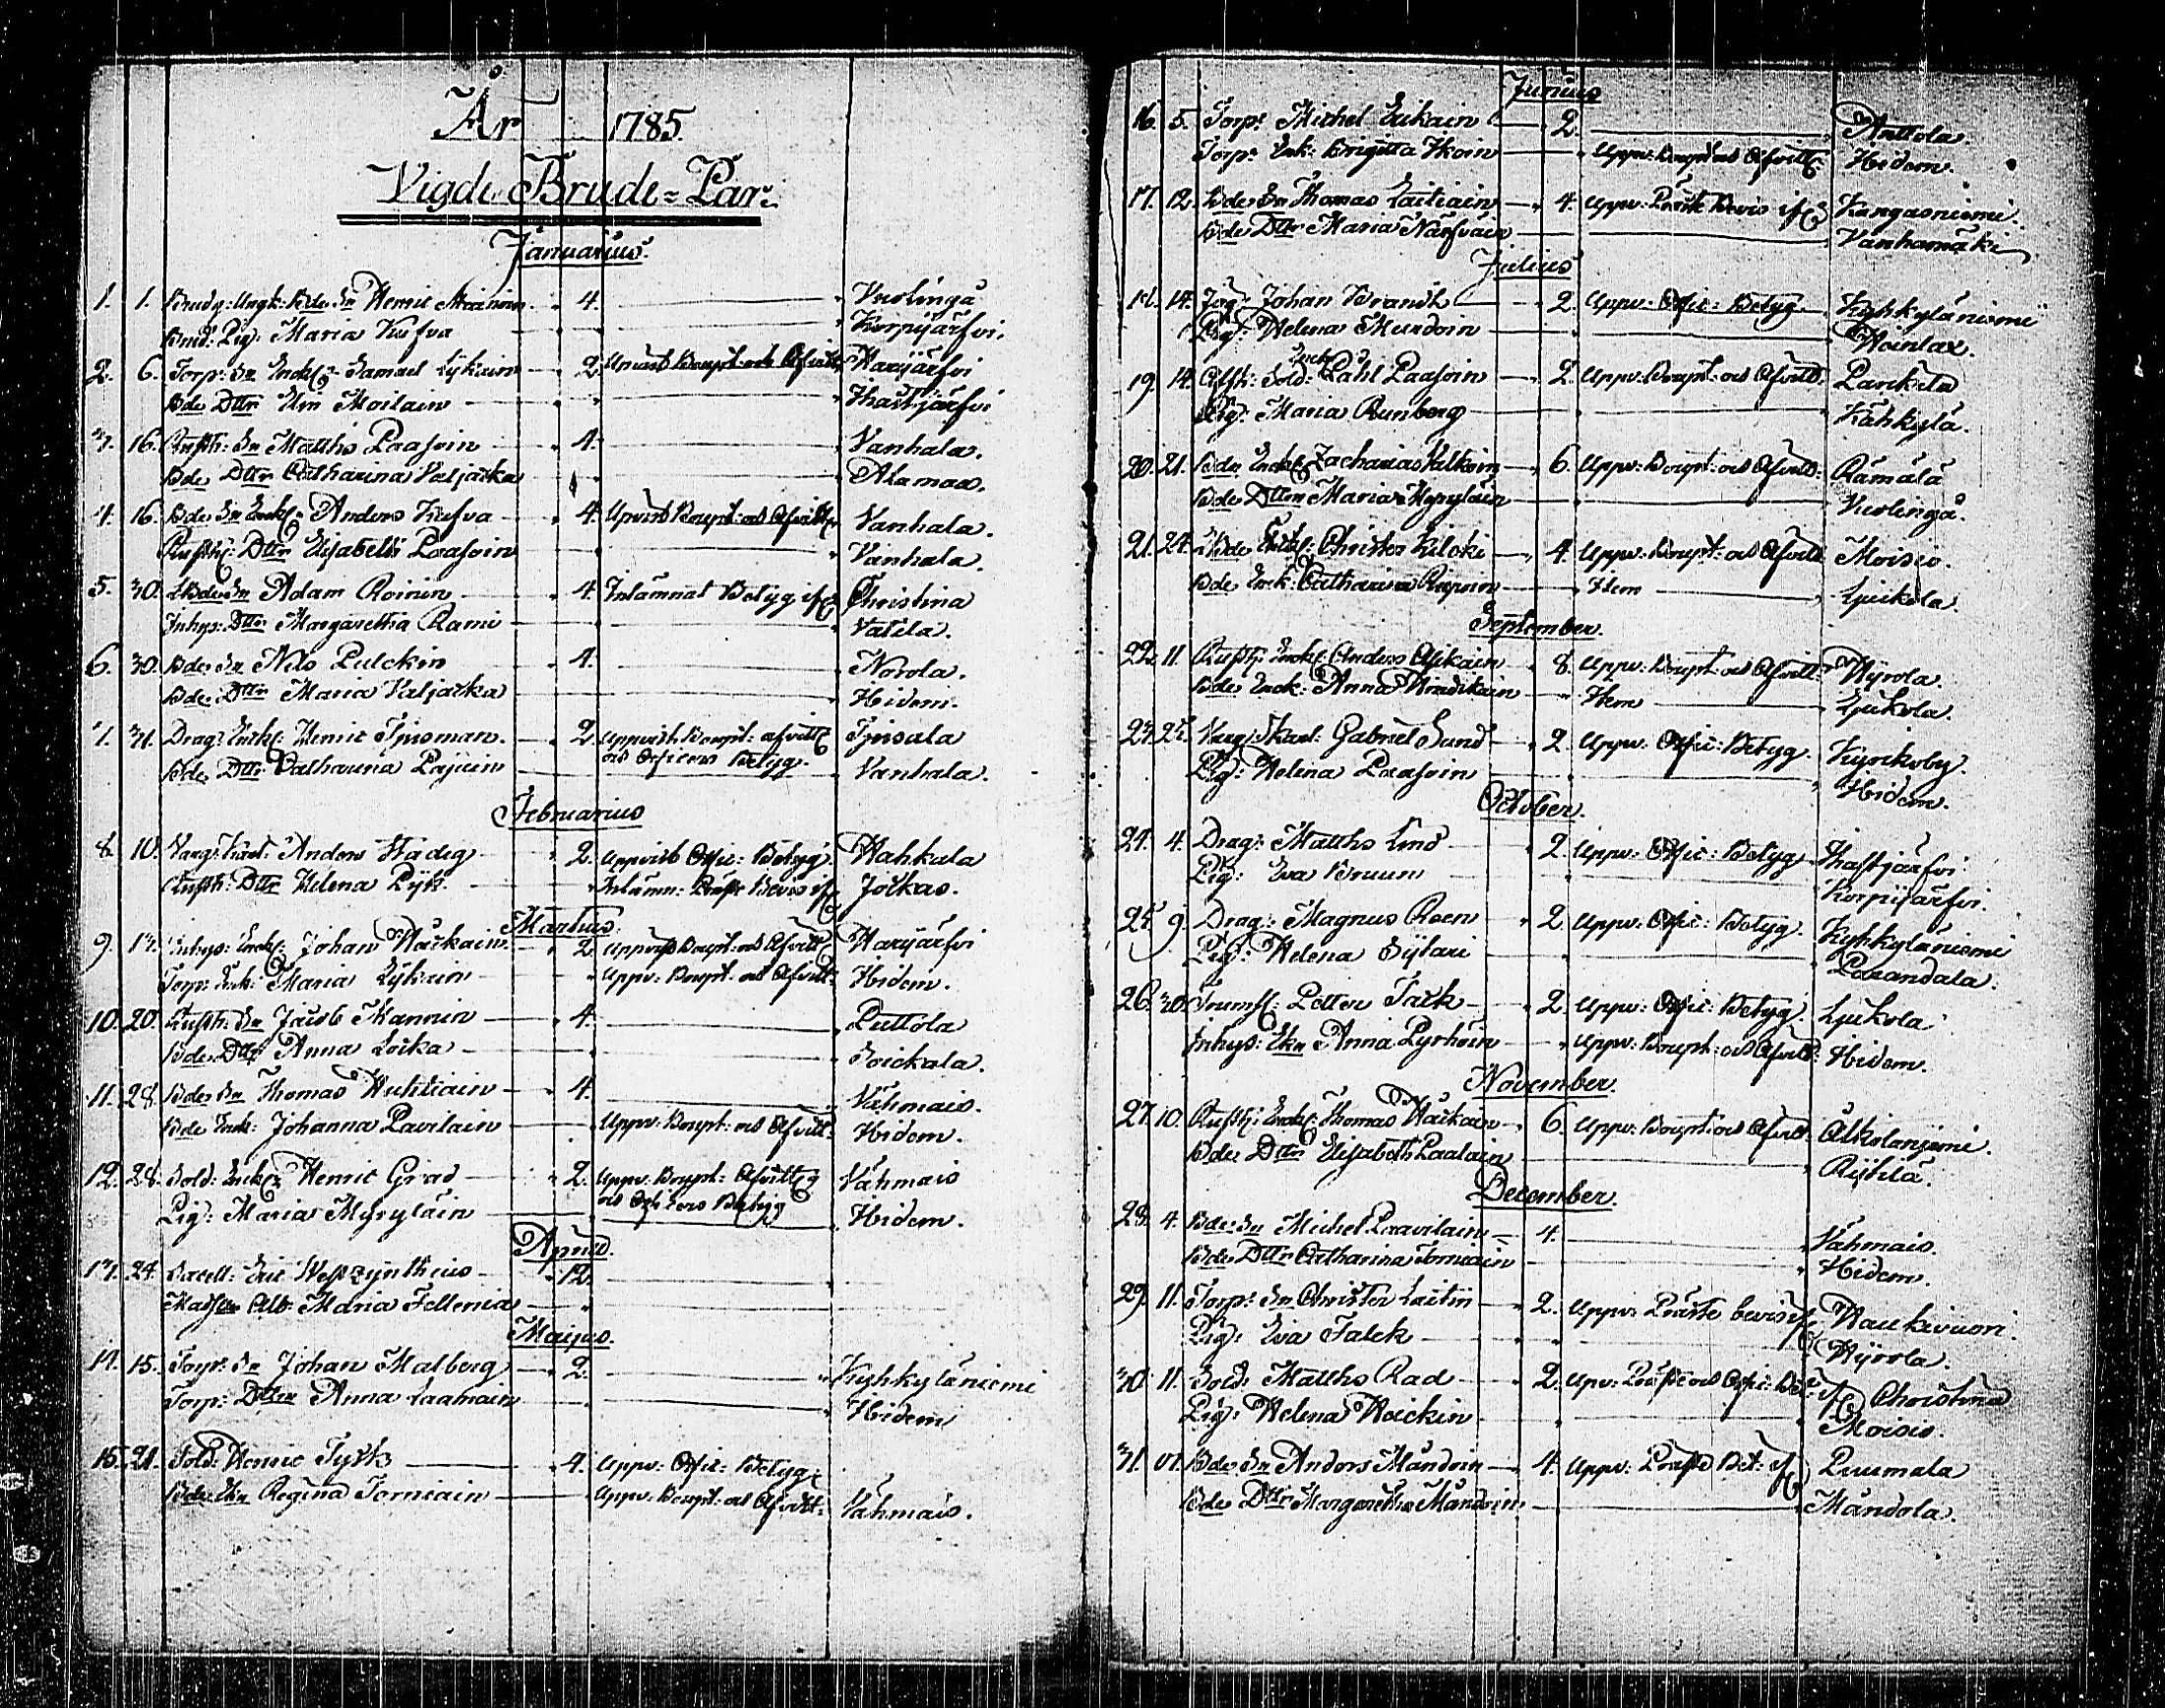 År 1785.
Vigde Brude=Par.
Januarius.
1. 1. Brudg: Ungk: Bde Sn Henric 4. Vuolinga
Brud: Pig: Maria Kufva Korpijärfvi.
2. 6. Torp: Sn Enckl: Samuel Lykain 2. Upvist Boupt: och Afvittr: Harjärfvi
Bde Dttr Elin Moilain Thastjärfvi
3. 16. Rusth: Sn Matths Paasoin 4. Vanhala.
Bde Dttr Catharina Valjacka Ahamaa.
4. 16. Bde Sn Enckl: Anders Kufva 4. Upvist Boupt: och Afvittr: Vanhala.
Rusth: Dttr Elisabeth Paasoin Vanhala.
5. 30. Bde Sn Adam Roinin 4. Inlämnat Betyg Christina
Inhys: Dttr Margaretha Rami Vatila.
6. 30. Bde Sn Nils Pulckin 4. Norola.
Bde Dttr Maria Valjacka Hidem.
7. 31. Drag: Enckl: Henric Tjusman. 2. Uppvist Boupt: afvittr: Tjusala
och Officers Betyg.
Bde Dttr Catharina Pajuin Vanhala.
Februarius
8. 10. Varg: Karl: Anders Hadig 2. Uppvist Offic: Betyg Hahkala
Rusth: Dttr Helena Pyk. Inlämn: Präst Bevis Jockas.
Martius.
9. 13. Inhys: Enckl: Johan Häckain 2. Uppvist Boupt: och Afvittr: Harjärfvi
Torp: Enk: Maria Lykain Uppv: Boupt: och Afvittr: Hidem.
10. 20. Rusth: Sn Jacob Mannin 4. Puttola
Bde Dttr Anna Locka Soickala.
11. 28. Bde Sn Thomas Huhtiain 4. Vähmais.
Bde Enk: Johanna Pavilain Uppv: Boupt: och Afvittr: Hidem.
12. 28. Sold: Enckl: Henric Grad 2. Uppv: Boupt: Afvittr: Vähmais
och Officers Betyg
Pig: Maria Myryläin Hidem.
Aprill.
13. 24. Sacell: Eric Wesszynthius 12.
Mads: Maria Fellenia
Maijus.
14. 15. Torp: Sn Johan Malberg 2. Kyhkyläniemi
Torp: Dttr Anna Laamain Hidem
15. 21. Sold: Henric Tyck 4. Uppv: Offic: Betyg:
Bde Ekn Regina Torniain Uppv: Boupt: och Afvittr: Vähmais.
Junius
16. 5. Torp: Michel Eukain 2. Anttola.
Torp: Enk: Brigitta Ikoin Uppv: Boupt: och Afvittr: Hidem.
17. 12. Bde Sn Thomas Laitiain 4. Uppv: Präste Bevis Kangasniemi.
Bde Dttr Maria Närfväin Vanhamäki
Julius
18. 14. Jäg: Johan Brandt 2. Uppv: Offic: Betyg. Kyhkyläniemi
Pig: Helena Mundoin Heinlax.
19. 14. Afsk: Sold: Enckl: Påhl Paasoin 2. Uppv: Boupt: och Afvittr. Parikila
Pig: Maria Runberg Kähkylä.
20. 21. Bde Enckl: Zacharias Valkoin 6. Uppv: Boupt: och Afvittr: Rämälä
Bde Dttr Maria Myryläin Vuolinga.
21. 24. Bde Enckl: Christer Kiloki 4. Uppv: Boupt: och Afvittr Moisio.
Bde Enk: Catharina Repoin Item Ljukola.
September.
22. 11. Rusth: Enckl: Anders Asikain 8. Uppv: Boupt: och Afvittr: Hyrola.
Bde Enck: Anna Hindikain Item Ljukola.
23. 25. Varg: Karl: Gabriel Sund 2. Uppv: Offic: Betyg. Kyrckoby.
Pig: Helena Paasoin Hidem.
October.
24. 4. Drag: Matths Lind 2. Uppv: Offic: Betyg Thastjärfvi
Pig: Eva Bruun Korpijärfvi.
25. 9. Drag: Magnus Roen 2. Uppv: Offic: Betyg. Kyhkyläniemi
Pig: Helena Sijtari Parandala.
26. 30. Trumsl: Petter Tack 2. Uppv: Offic: Betyg. Ljukola
Inhys: Ekn Anna Pyrhöin Uppv: Boupt: och Afvittr: Hidem.
November.
27. 10. Rusth: Enckl: Thomas Häckain 6. Uppv: Boupt: och Afvittr: Alkolaniemi.
Bde Dttr Elisabeth Paalain Rijhilä.
December.
28. 4. Bde Sn Michel Paavilain 4. Vähmais.
Bde Dttr Catharina Torniain Hidem.
29. 11. Torp: Sn Christer Laitin 2. Uppv: Präste bevis Haukivuori.
Pig: Eva Falck Hyrola.
30. 11. Sold: Matths Rad 2. Upv: Präste och Offic: Bet: Christina
Pig: Helena Häckin Moisio.
31. Bde Sn Anders Mändoin 4. Uppv: Präste Bet: Puumala
Bde Dttr Margaretha Mändoin Mändola.